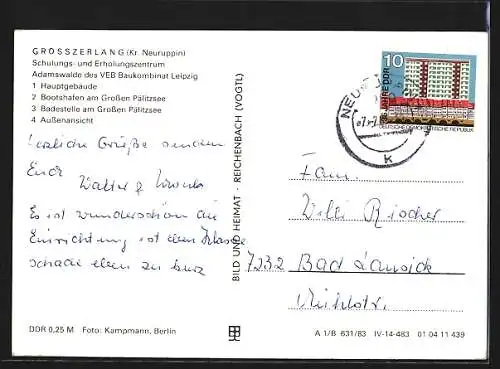 GROSSZERLANG (Kr. Neuruppin)
Schulungs- und Erholungszentrum
Adamswalde des VEB Baukombinat Leipzig
1 Hauptgebäude
2 Bootshafen am Großen Pälitzsee
3 Badestelle am Großen Pälitzsee
4 Außenansicht
Herzliche Grüße senden
Euch
Walter & Ursula
Es ist wunderschön die
Einrichtung ist eben Klasse
schade eben zu kurz
DDR 0,25 M Foto: Kampmann, Berlin
BILD UND HEIMAT · REICHENBACH (VOGTL)
10
JAHRE DDR
DEUTSCHE DEMOKRATISCHE REPUBLIK
k
Fam.
Willi Rischer
7232 Bad Lausick
A 1/B 631/83 IV-14-483 01 04 11 439